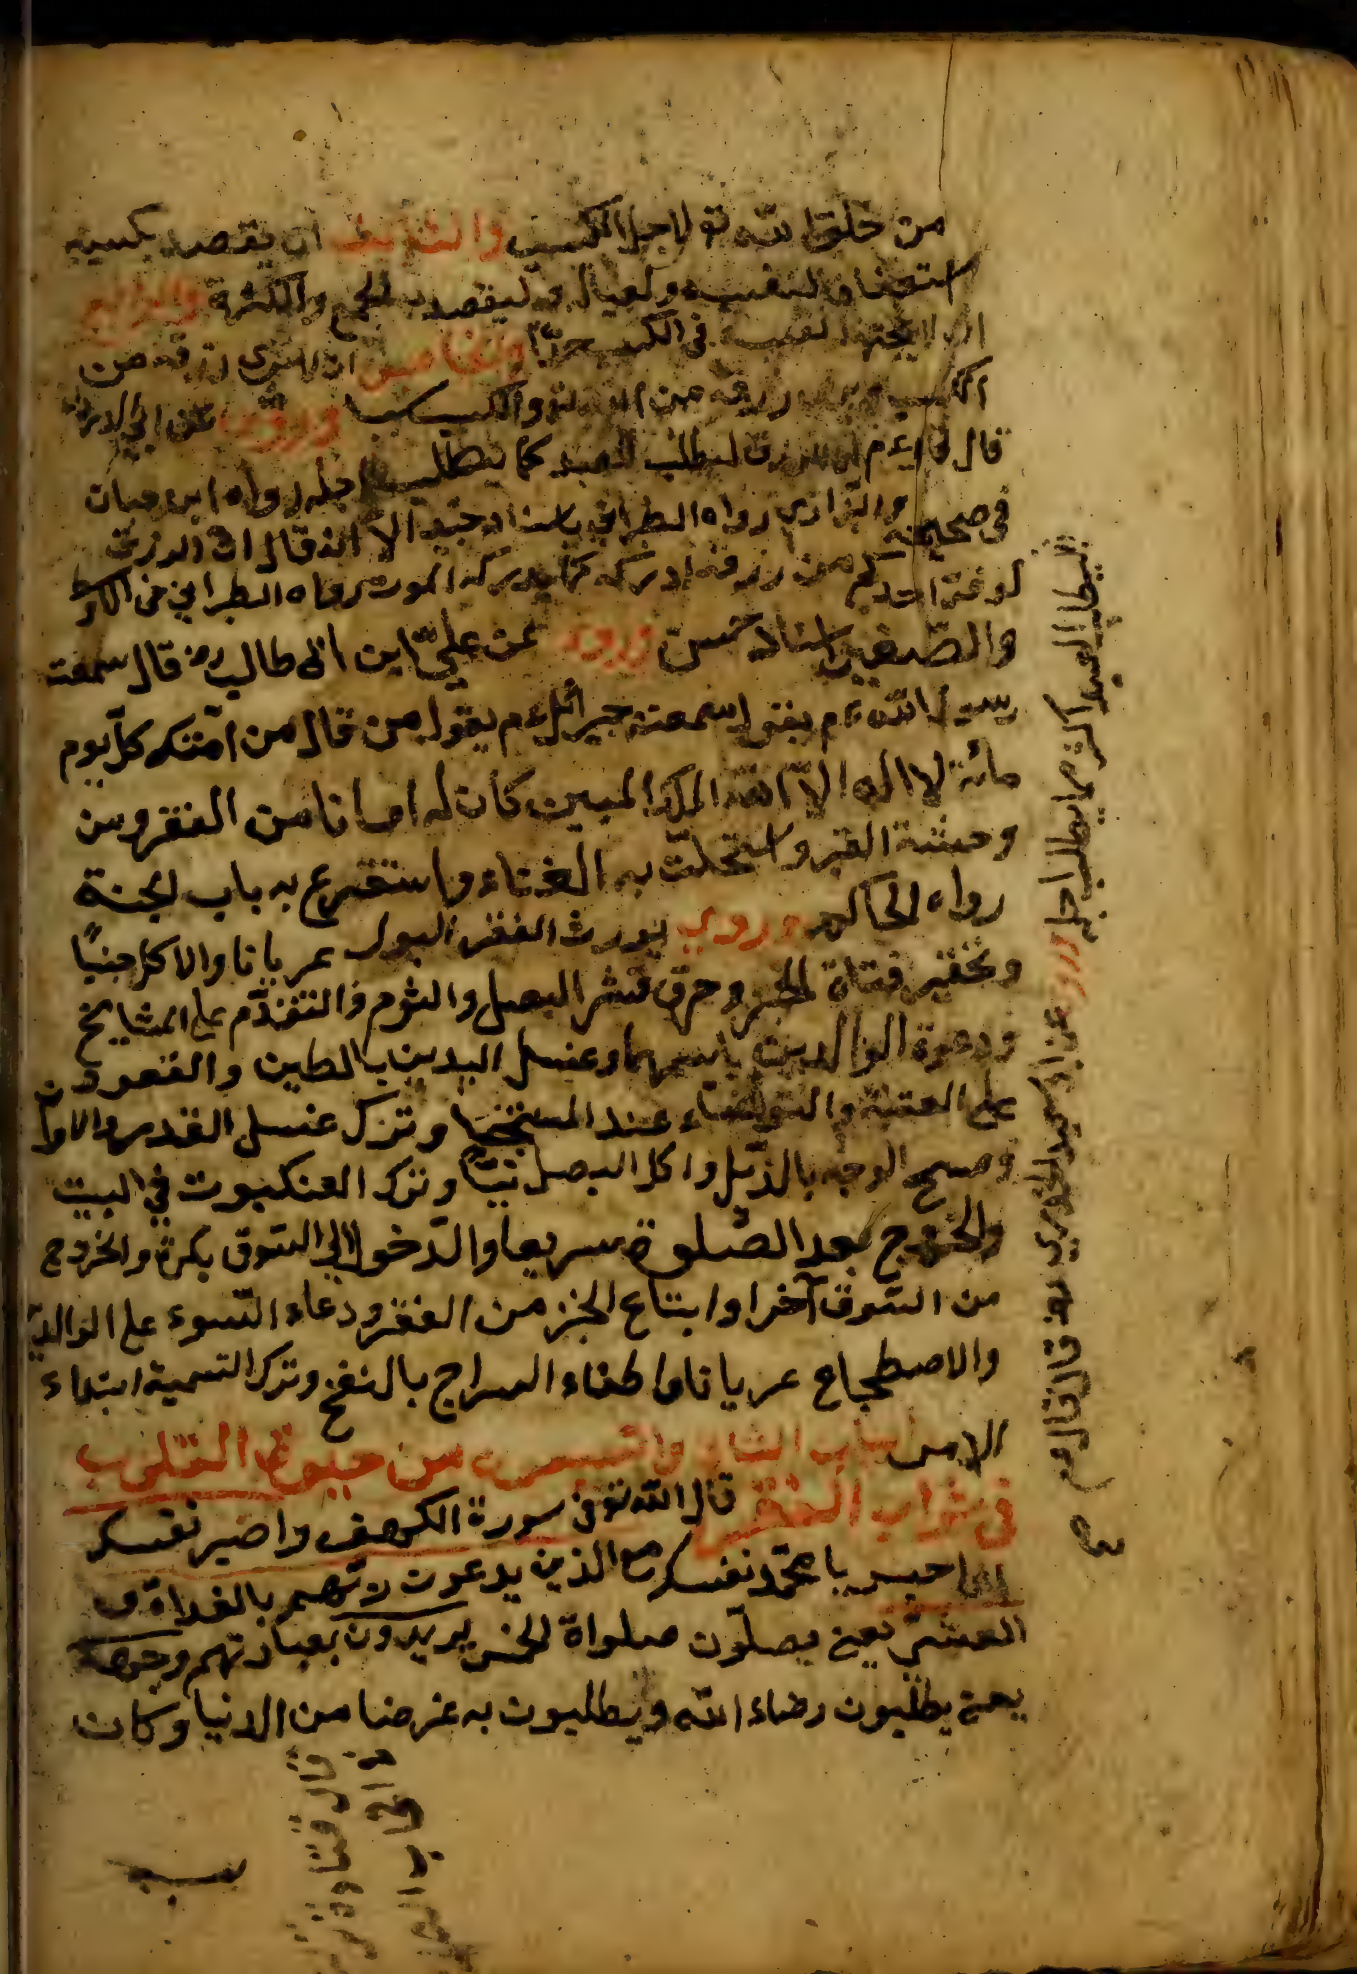 من حقوق الله تع لاجل الكسب والثالث ان يقصد بكسبه
استعفافا لنفسه ولعياله ولا يقصد به الجمع والكثرة والرابع
ان لا يجتهد نفسه في الكسب جدا والخامس ان لا يرى رزقه من
الكسب رزقه من الله تع والكسب سببا وروى عن ابي الدرداء
قال قال ءم ان الرزق ليطلب العبد كما يطلبه اجله رواه ابن حبان
في صحيحه والبزار رواه الطبراني باسناد جيد الا انه قال ان الرزق
لو فر احدكم من رزقه ادركه كما يدركه الموت رواه الطبراني في الاوسط
والصغير باسناد حسن ورود عن علي ابن ابي طالب رض قال سمعت
رسول الله ءم يقول سمعت جبرائل ءم يقول من قال من امتك كل يوم
مائة لا اله الا الله الملك المبين كان له امانا من الفقر ومن
وحشة القبر واستجلب به الغناء واستقرع به باب الجنة
رواه الحاكم وروي يورث الفقر البول عريانا والاكل جنبا
وتحقير فتاة الخبز وحرق قشر البصل والثوم والتقدم على المشايخ
ودعوة الوالدين باسمهما وغسل اليدين بالطين والقعود
على العتبة والتوضاء عند المستنجا وترك غسل القدر والاوا
ومسح الوجه بالذيل واكل البصل نيئا وترك العنكبوت في البيت
والخروج بعد الصلوة سريعا والدخول الى السوق بكرة والخروج
من السوق آخرا وابتاع الخبز من الفقر ودعاء السوء على الوالدين
والاضطجاع عريانا واطفاء السراج بالنفخ وترك التسمية ابتداء
الامر الباب الثاني والتسعون من حيوة القلوب
في ثواب الفقر قال الله تع في سورة الكهف واصبر نفسك
اي احبس يا محمد نفسك مع الذين يدعون ربهم بالغداة و
العشي يعني يصلون صلواة الخمس يريدون بعبادتهم وجهه
يعني يطلبون رضاء الله ويطلبون به عرضا من الدنيا وكان
ليطلب العبد اكثر مما يطلب اجله وروى عن ابي سعيد الخدري رض قال قال ءم